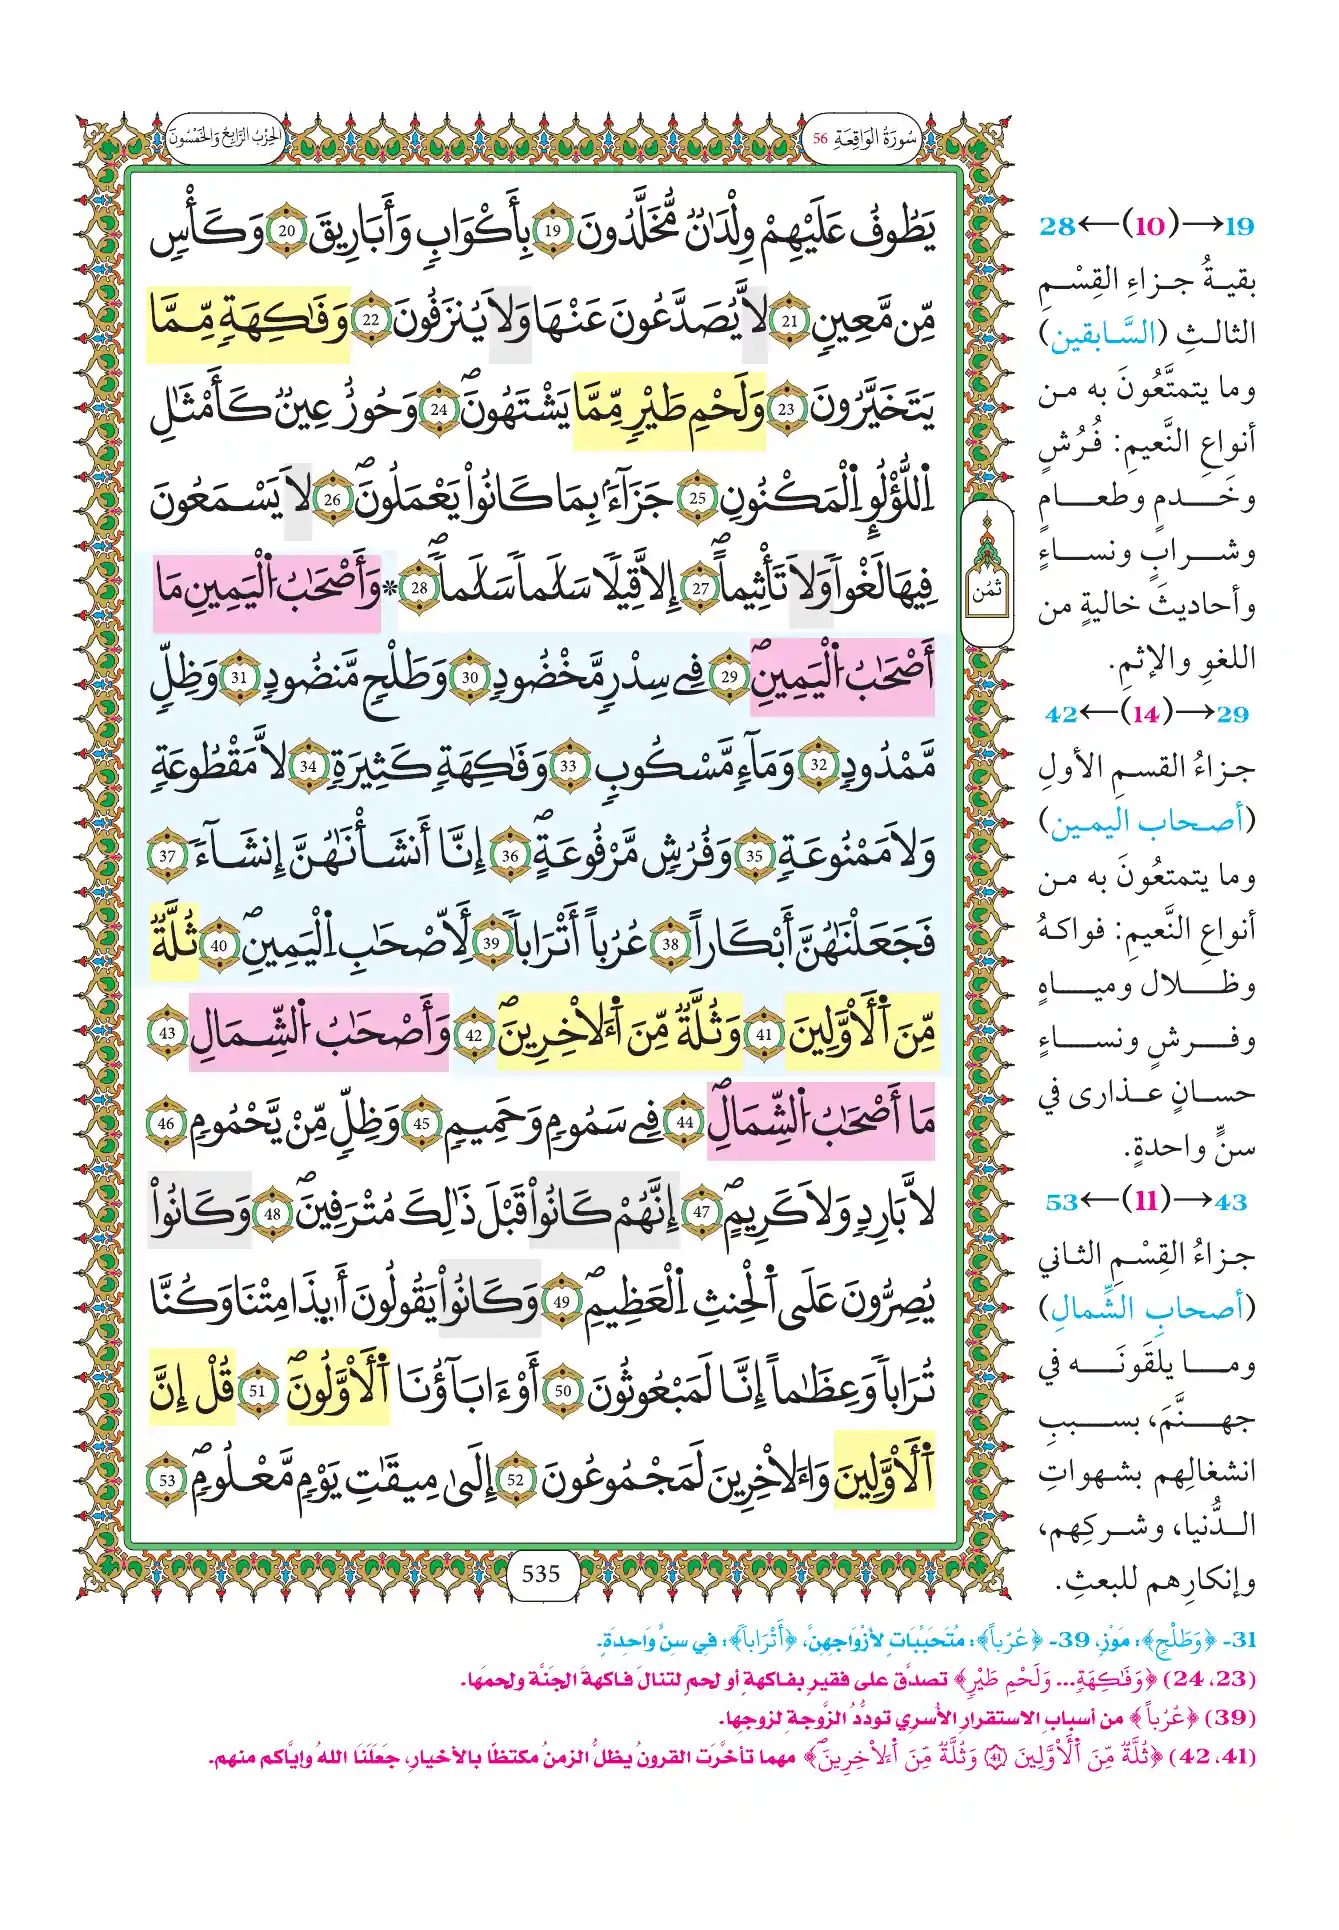 سُورَةُ الوَاقِعَةِ 56
الحِزْبُ الرَّابِعُ وَالخَمْسُونَ
يَطُوفُ عَلَيْهِمْ وِلْدَٰنٞ مُّخَلَّدُونَ 19 بِأَكْوَابٖ وَأَبَارِيقَ 20 وَكَأْسٖ
مِّن مَّعِينٖ 21 لَّا يُصَدَّعُونَ عَنْهَا وَلَا يُنزَفُونَ 22 وَفَٰكِهَةٖ مِّمَّا
يَتَخَيَّرُونَ 23 وَلَحْمِ طَيْرٖ مِّمَّا يَشْتَهُونَۖ 24 وَحُورٌ عِينٞ كَأَمْثَٰلِ
اِ۬للُّؤْلُوِٕ اِ۬لْمَكْنُونِ 25 جَزَآءَۢ بِمَا كَانُواْ يَعْمَلُونَۖ 26 لَا يَسْمَعُونَ
فِيهَا لَغْواٗ وَلَا تَأْثِيماًۖ 27 إِلَّا قِيلاٗ سَلَٰماٗ سَلَٰماٗۖ 28 * وَأَصْحَٰبُ اُ۬لْيَمِينِ مَا
أَصْحَٰبُ اُ۬لْيَمِينِۖ 29 فِے سِدْرٖ مَّخْضُودٖ 30 وَطَلْحٖ مَّنضُودٖ 31 وَظِلّٖ
مَّمْدُودٖ 32 وَمَآءٖ مَّسْكُوبٖ 33 وَفَٰكِهَةٖ كَثِيرَةٖ 34 لَّا مَقْطُوعَةٖ
وَلَا مَمْنُوعَةٖ 35 وَفُرُشٖ مَّرْفُوعَةٍۖ 36 اِنَّآ أَنشَأْنَٰهُنَّ إِنشَآءٗ 37
فَجَعَلْنَٰهُنَّ أَبْكَاراً 38 عُرُباً أَتْرَاباٗ 39 لِّأَصْحَٰبِ اِ۬لْيَمِينِۖ 40 ثُلَّةٞ
مِّنَ اَ۬لْأَوَّلِينَ 41 وَثُلَّةٞ مِّنَ اَ۬لْأٓخِرِينَۖ 42 وَأَصْحَٰبُ اُ۬لشِّمَالِ 43
مَا أَصْحَٰبُ اُ۬لشِّمَالِۖ 44 فِے سَمُومٖ وَحَمِيمٖ 45 وَظِلّٖ مِّنْ يَّحْمُومٖ 46
لَّا بَارِدٖ وَلَا كَرِيمٍۖ 47 اِنَّهُمْ كَانُواْ قَبْلَ ذَٰلِكَ مُتْرَفِينَۖ 48 وَكَانُواْ
يُصِرُّونَ عَلَى اَ۬لْحِنثِ اِ۬لْعَظِيمِۖ 49 وَكَانُواْ يَقُولُونَ أَئِذَا مِتْنَا وَكُنَّا
تُرَاباٗ وَعِظَٰماً إِنَّا لَمَبْعُوثُونَ 50 أَوَءَابَآؤُنَا اَ۬لْأَوَّلُونَۖ 51 قُلْ إِنَّ
اَ۬لْأَوَّلِينَ وَالْأٓخِرِينَ لَمَجْمُوعُونَ 52 إِلَىٰ مِيقَٰتِ يَوْمٖ مَّعْلُومٖۖ 53
ثُمُن
535
19→(10)←28
بقيةُ جزاءِ القِسْمِ
الثالثِ (السَّابقين)
وما يتمتَّعُونَ به من
أنواعِ النَّعيمِ: فُرُشٍ
وخَدمٍ وطعامٍ
وشرابٍ ونساءٍ
وأحاديثَ خاليةٍ من
اللغوِ والإثمِ.
29→(14)←42
جزاءُ القسمِ الأولِ
(أصحاب اليمين)
وما يتمتعُونَ به من
أنواعِ النَّعيمِ: فواكهُ
وظلال ومياهٍ
وفرشٍ ونساءٍ
حسانٍ عذارى في
سنٍّ واحدةٍ.
43→(11)←53
جزاءُ القِسْمِ الثاني
(أصحابِ الشِّمالِ)
وما يلقَونَه في
جهنَّمَ، بسببِ
انشغالِهم بشهواتِ
الدُّنيا، وشركِهم،
وإنكارِهم للبعثِ.
31- ﴿وَطَلْحٖ﴾: مَوْزٍ، 39- ﴿عُرُباً﴾: مُتَحَبِّبَاتٍ لأزْوَاجِهِنَّ، ﴿أَتْرَاباٗ﴾: فِي سنٍّ وَاحِدَةٍ.
(23، 24) ﴿وَفَٰكِهَةٖ... وَلَحْمِ طَيْرٖ﴾ تصدَّق على فقيرٍ بفاكهةٍ أو لحمٍ لتنالَ فاكهةَ الجَنَّة ولحمَها.
(39) ﴿عُرُباً﴾ من أسبابِ الاستقرارِ الأسري تودُّدُ الزَّوجةِ لزوجِها.
(41، 42) ﴿ثُلَّةٞ مِّنَ اَ۬لْأَوَّلِينَ 41 وَثُلَّةٞ مِّنَ اَ۬لْأٓخِرِينَۖ﴾ مهما تأخَّرَت القرونُ يظلُّ الزمنُ مكتظًا بالأخيارِ، جَعَلَنَا اللهُ وإيَّاكم منهم.